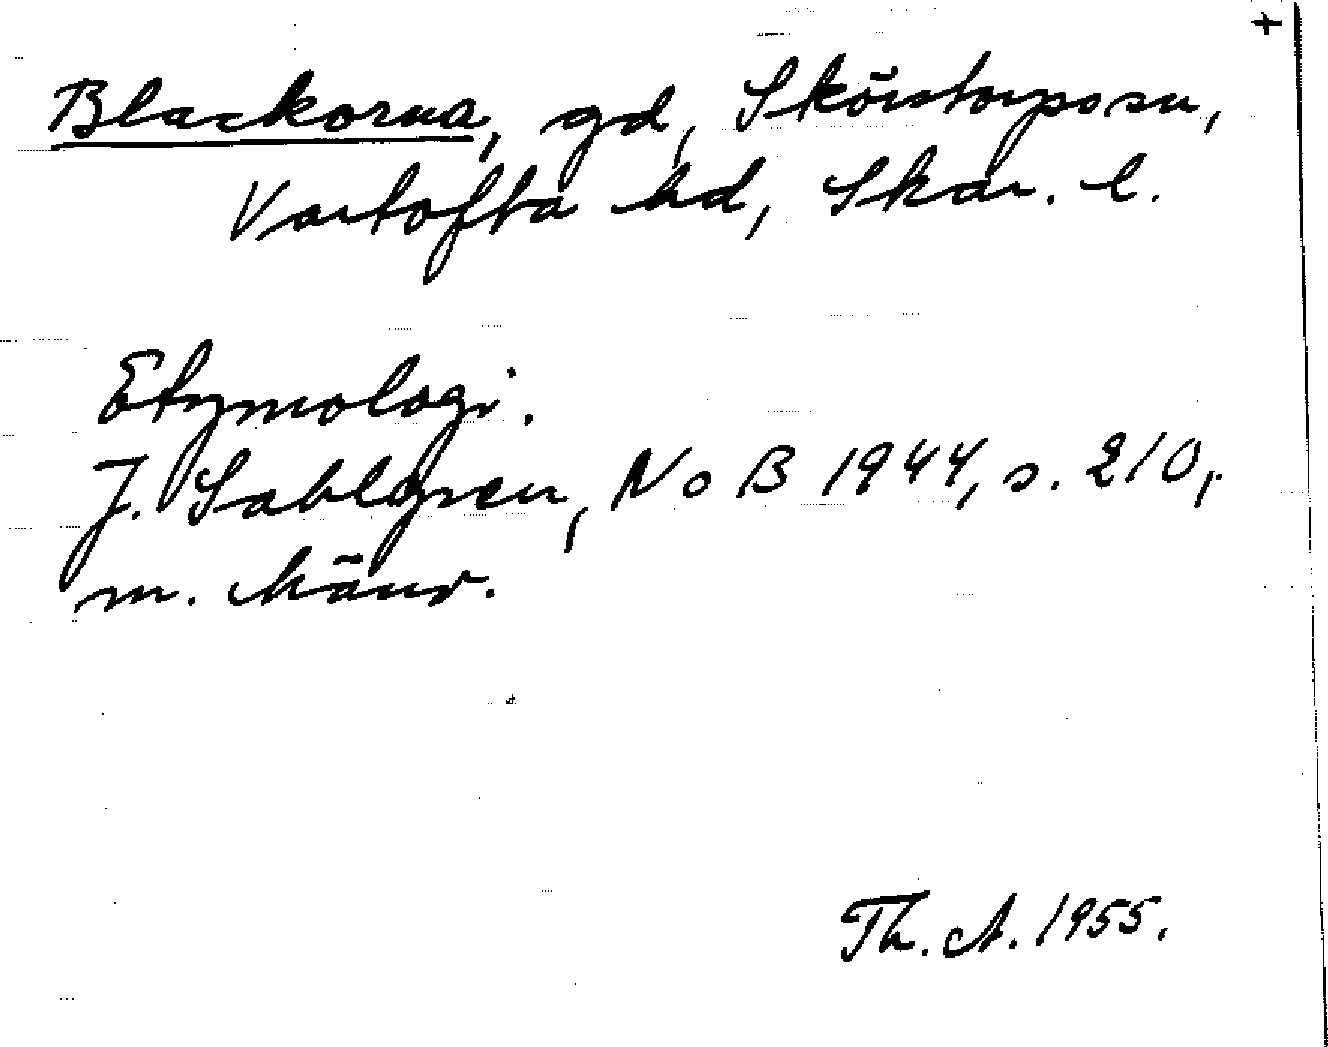 +
Blackorna, gd, Skörstorps sn,
Vartofta hd, Skar. l.
Etymologi.
J. Sahlgren, NoB 1944, s. 210,
m. hänv.
Th. A. 1955.